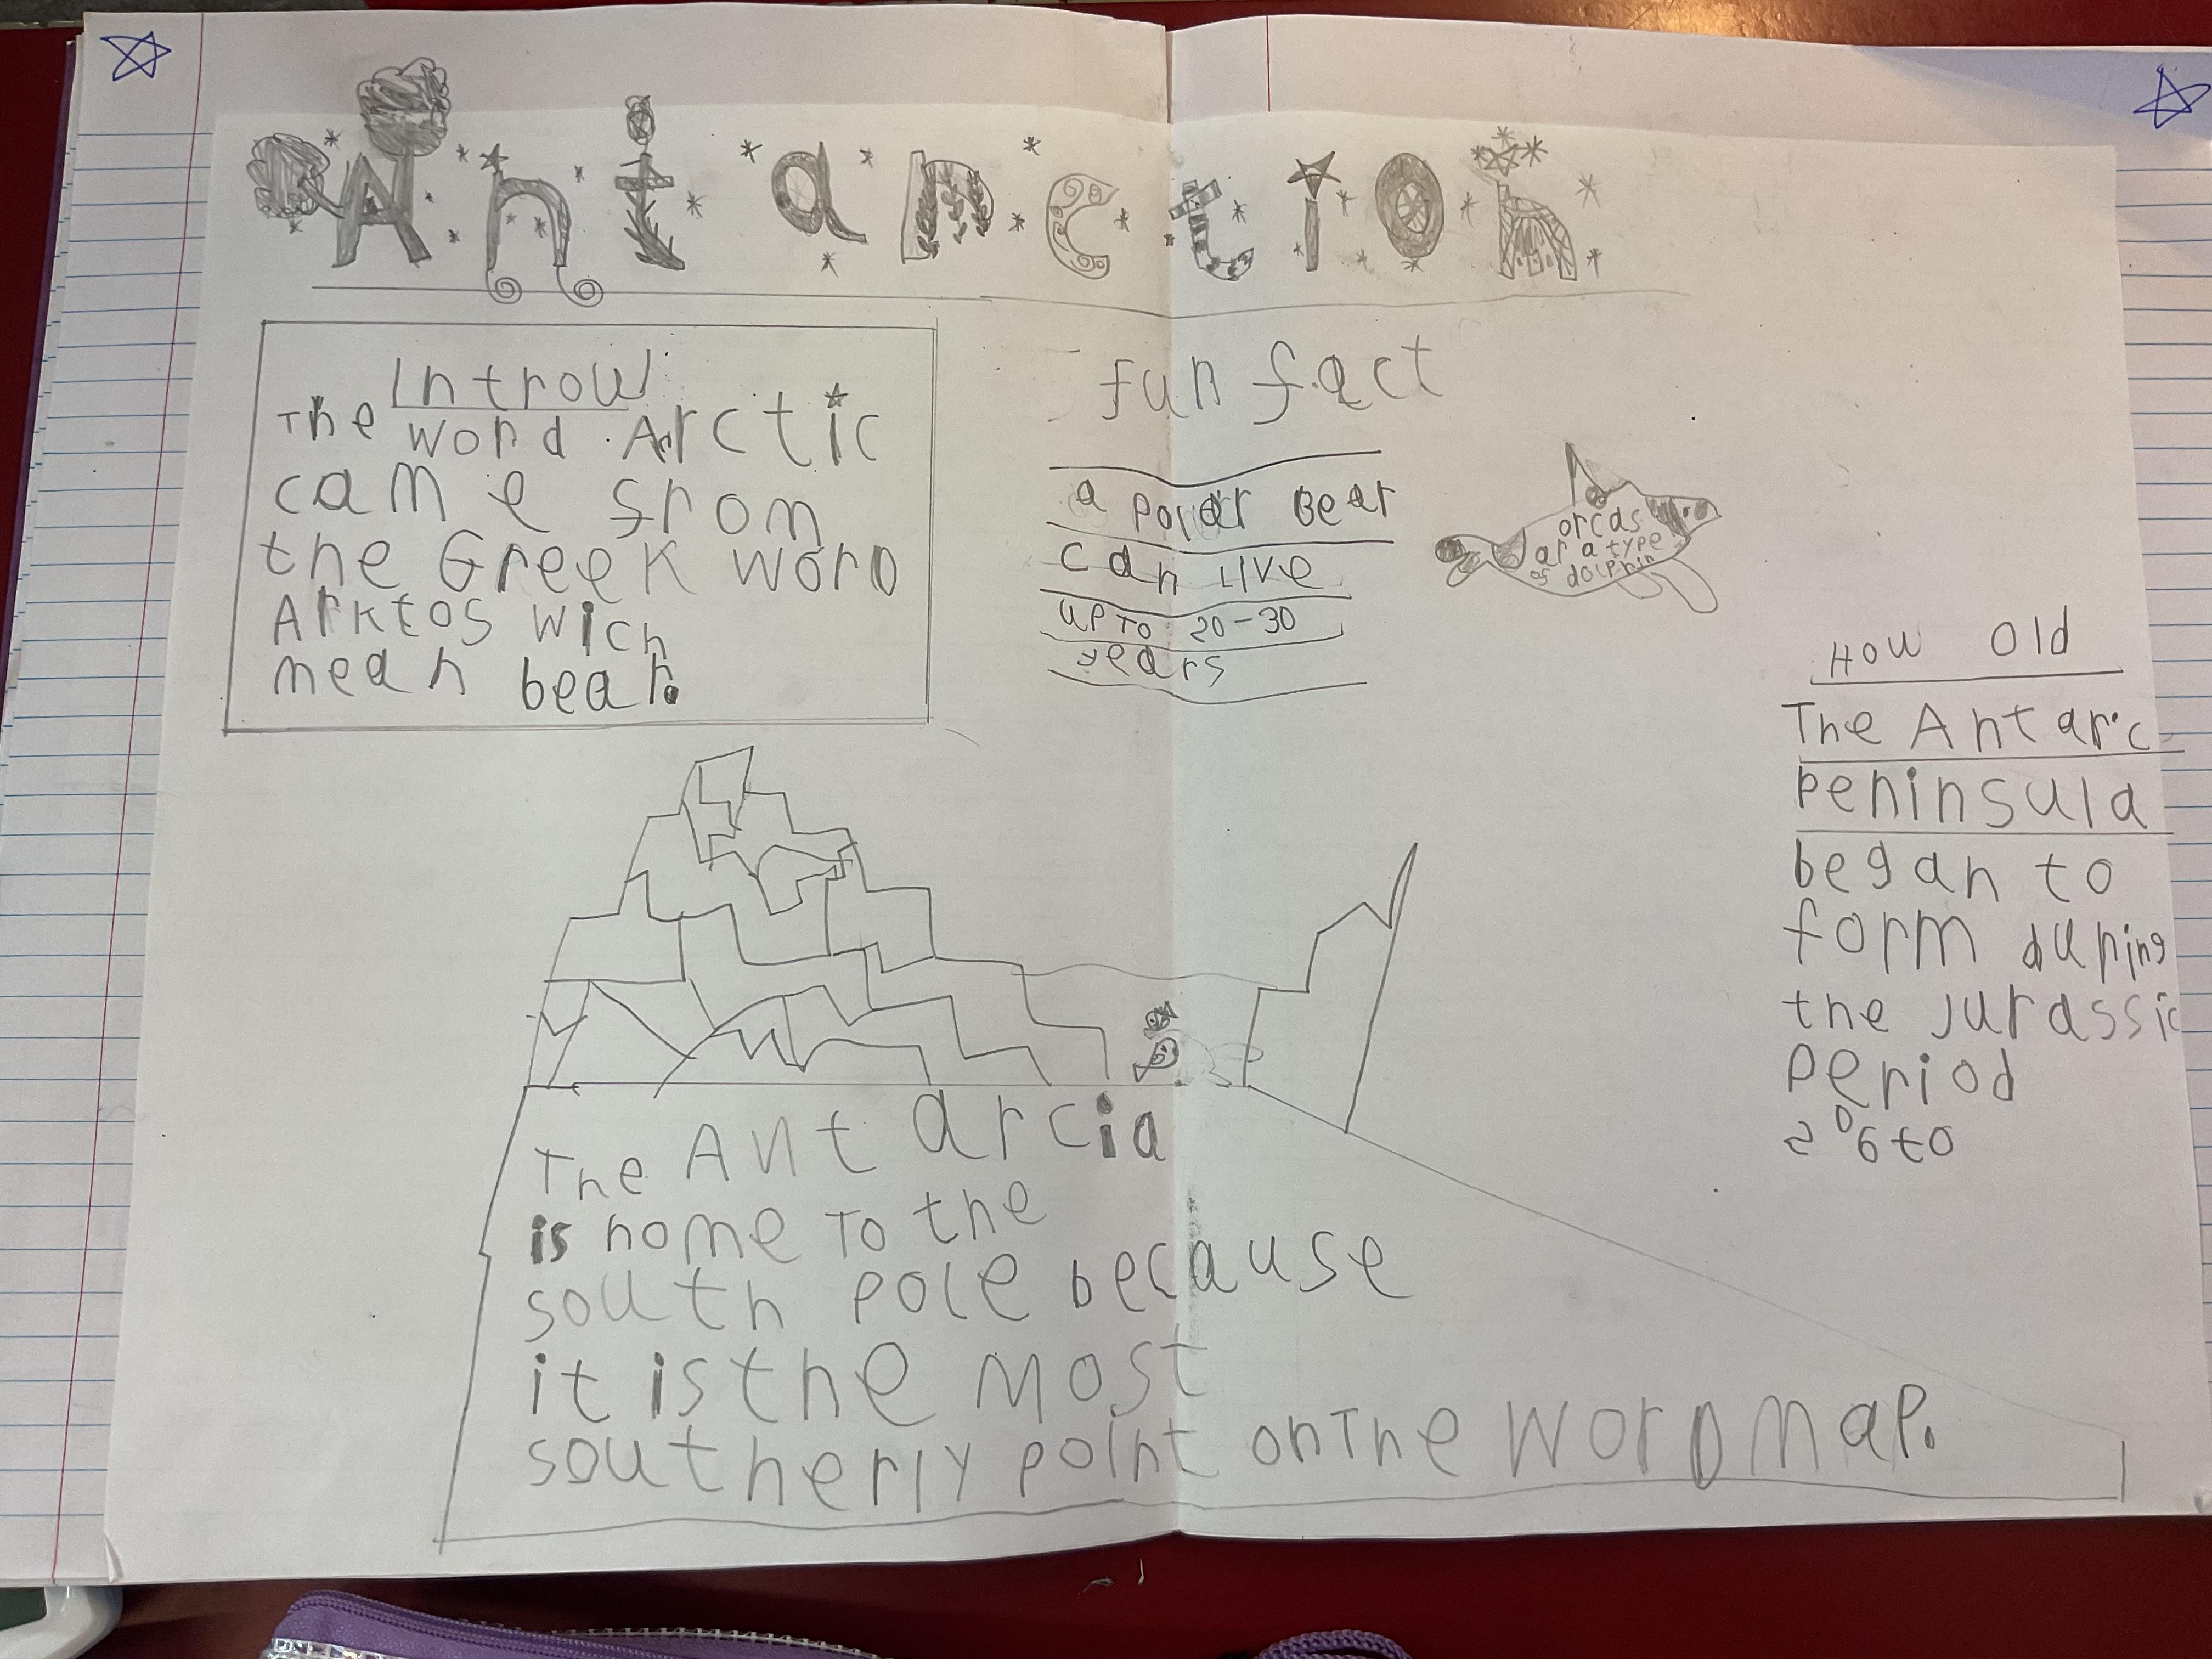 Antarction
Introw
The word Arctic
came from
the Greek word
Arktos wich
mean bear.
fun fact
a polar Bear
can live
up to 20-30
years
orcas
ar a type
of dolphin
How old
The Antarc
peninsula
began to
form during
the jurassic
period
206 to
The Antarcia
is home To the
south pole because
it is the most
southerly point on The word map.